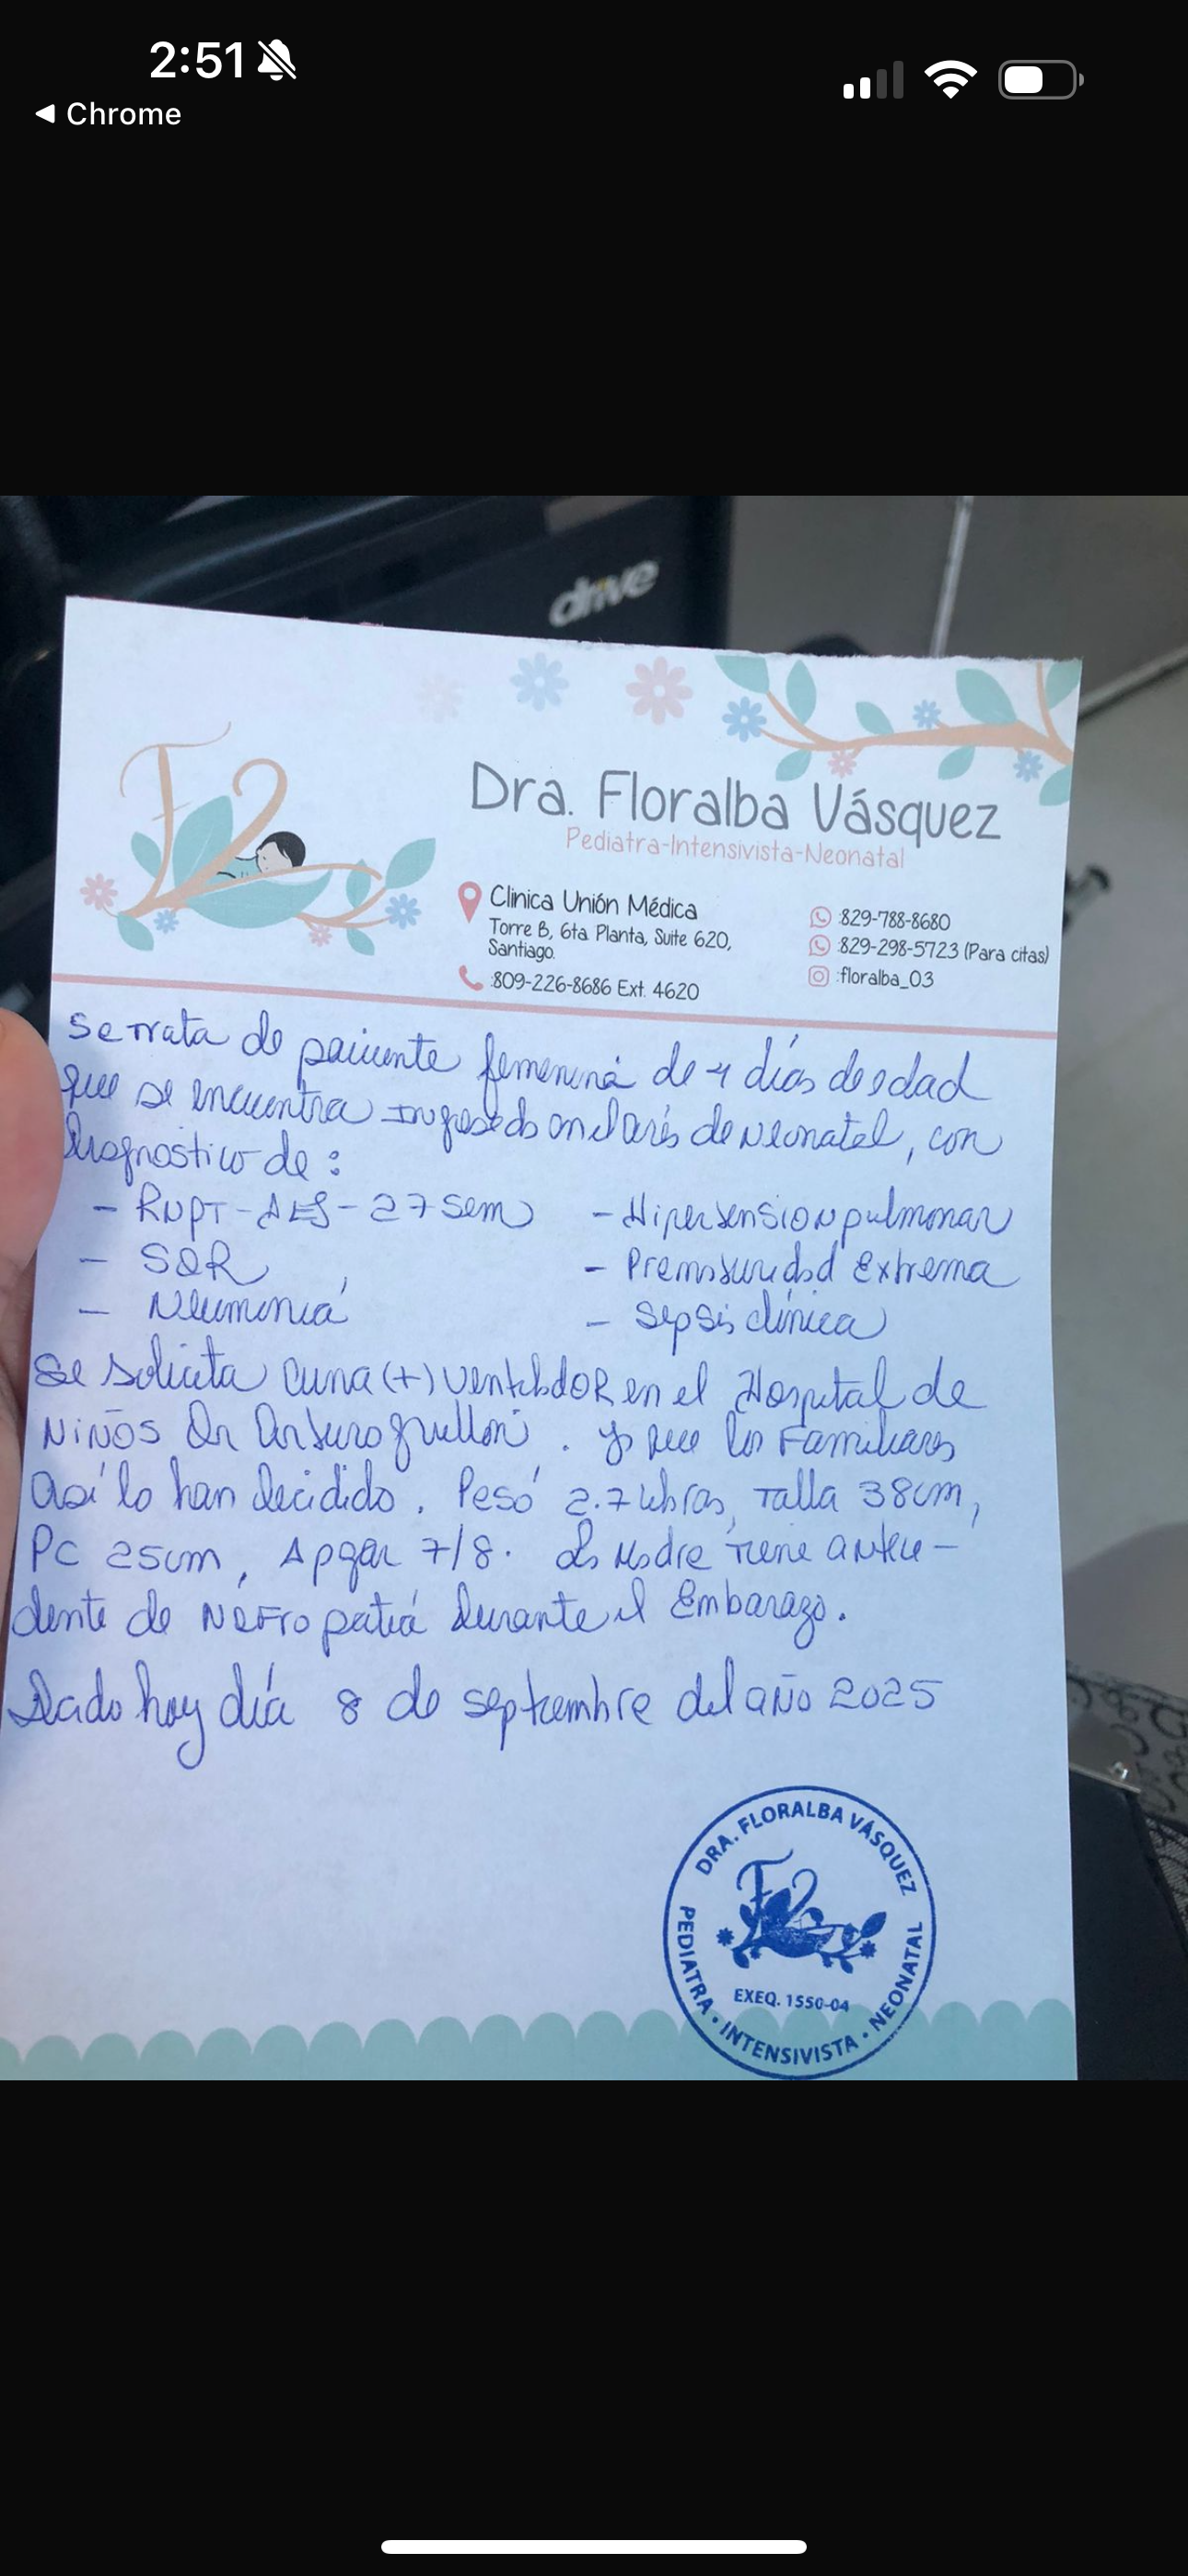 2:51
Chrome
drive
F2
Dra. Floralba Vásquez
Pediatra-Intensivista-Neonatal
Clinica Unión Médica
Torre B, 6ta Planta, Suite 620,
Santiago.
:809-226-8686 Ext. 4620
:829-788-8680
:829-298-5723 (Para citas)
:floralba_03
Se trata de paciente femenina de 4 días de edad
que se encuentra ingresado en el área de neonatal, con
Diagnostico de :
- RNPT-AEG-27 sem
- SDR
- Neumonía
- Hipertension pulmonar
- Prematuridad Extrema
- Sepsis clínica
Se solicita Cuna (+) ventilador en el Hospital de
Niños Dr Arturo Grullon . ya que los Familiares
Así lo han decidido. Pesó 2.7 libras, Talla 38cm,
PC 25cm, Apgar 7/8. La Madre Tiene antece-
dente de Nefropatía Durante el Embarazo.
Dado hoy día 8 de septiembre del año 2025
DRA. FLORALBA VÁSQUEZ
F2
EXEQ. 1550-04
PEDIATRA • INTENSIVISTA • NEONATAL